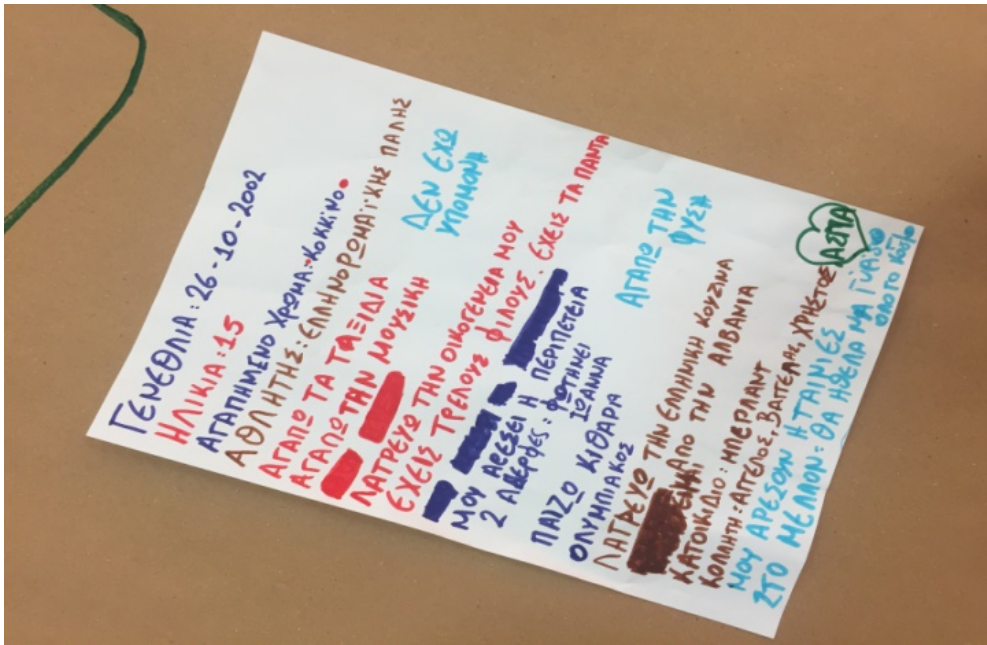 ΓΕΝΕΘΛΙΑ: 26-10-2002
ΗΛΙΚΙΑ: 15
ΑΓΑΠΗΜΕΝΟ ΧΡΩΜΑ: ΚΟΚΚΙΝΟ
ΑΘΛΗΤΗΣ: ΕΛΛΗΝΟΡΩΜΑΪΚΗΣ ΠΑΛΗΣ
ΑΓΑΠΩ ΤΑ ΤΑΞΙΔΙΑ
ΔΕΝ ΕΧΩ
ΥΠΟΜΟΝΗ
ΑΓΑΠΩ ΤΗΝ ΜΟΥΣΙΚΗ
ΛΑΤΡΕΥΩ ΤΗΝ ΟΙΚΟΓΕΝΕΙΑ ΜΟΥ
ΕΧΕΙΣ ΤΡΕΛΟΥΣ ΦΙΛΟΥΣ. ΕΧΕΙΣ ΤΑ ΠΑΝΤΑ
ΜΟΥ ΑΡΕΣΕΙ Η ΠΕΡΙΠΕΤΕΙΑ
2 ΑΔΕΡΦΕΣ: ΦΩΤΗΝΕΙ
ΙΩΑΝΝΑ
ΠΑΙΖΩ ΚΙΘΑΡΑ
ΑΓΑΠΩ ΤΗΝ
ΦΥΣΗ
ΟΛΥΜΠΙΑΚΟΣ
ΛΑΤΡΕΥΩ ΤΗΝ ΕΛΛΗΝΙΚΗ ΚΟΥΖΙΝΑ
ΕΙΜΑΙ ΑΠΟ ΤΗΝ ΑΛΒΑΝΙΑ
ΚΑΤΟΙΚΙΔΙΟ: ΜΠΕΡΛΑΝΤ
ΚΟΛΛΗΤΗ: ΑΓΓΕΛΟΣ, ΒΑΓΓΕΛΑΣ, ΧΡΗΣΤΟΣ
ΑΣΠΑ
ΜΟΥ ΑΡΕΣΟΥΝ Η ΤΑΙΝΙΕΣ
ΣΤΟ ΜΕΛΛΟΝ: ΘΑ ΗΘΕΛΑ ΝΑ ΓΥΡΙΣΩ
ΟΛΟ ΤΟ ΚΟΣΜΟ